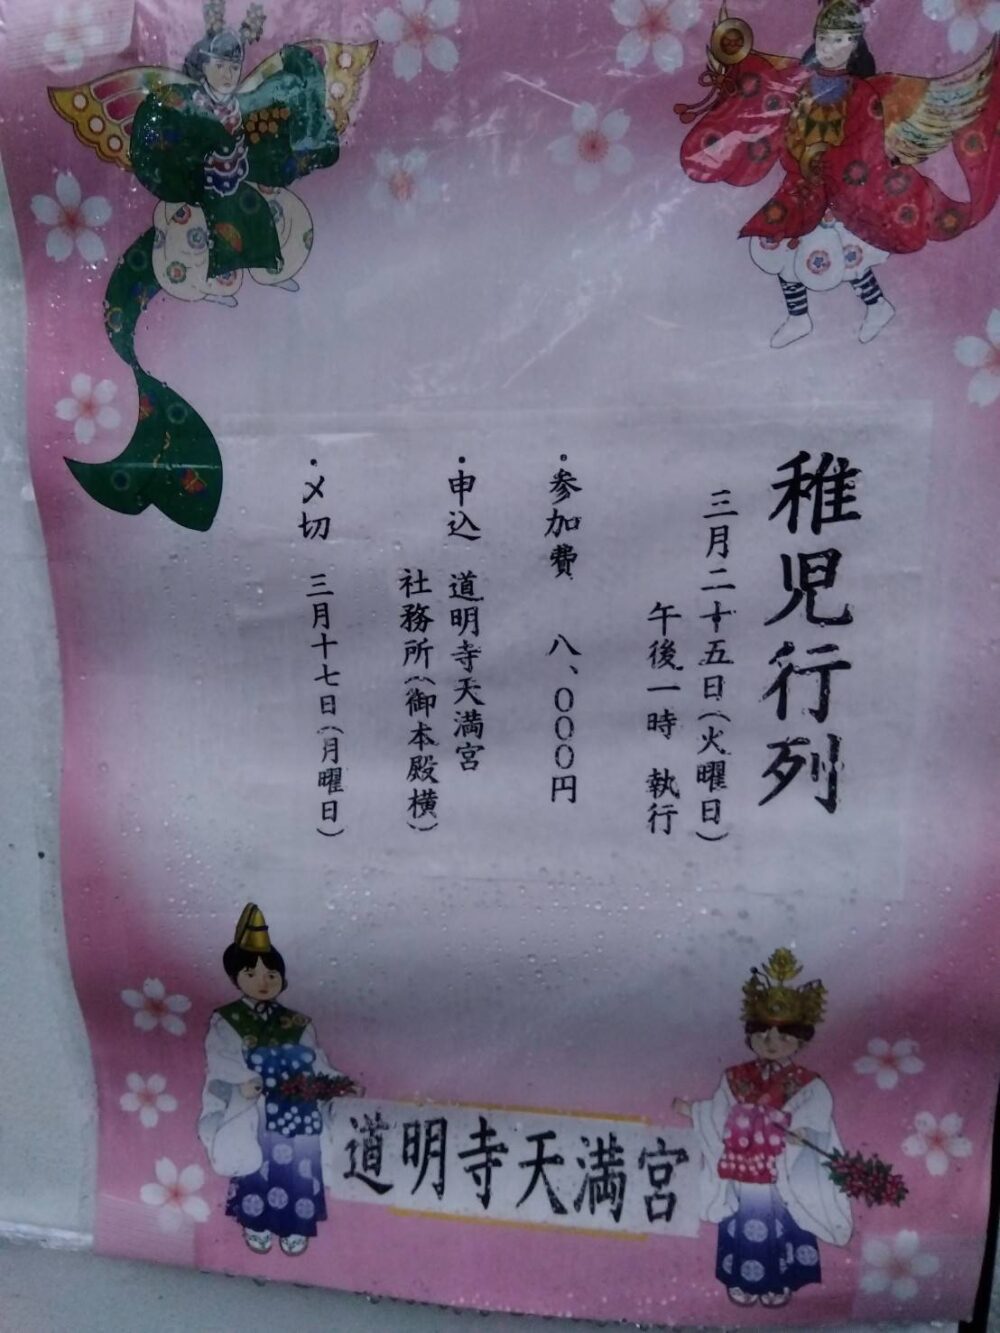 稚児行列
三月二十五日(火曜日)
午後一時 執行
・参加費 八、〇〇〇円
・申込 道明寺天満宮
社務所(御本殿横)
・〆切 三月十七日(月曜日)
道明寺天満宮